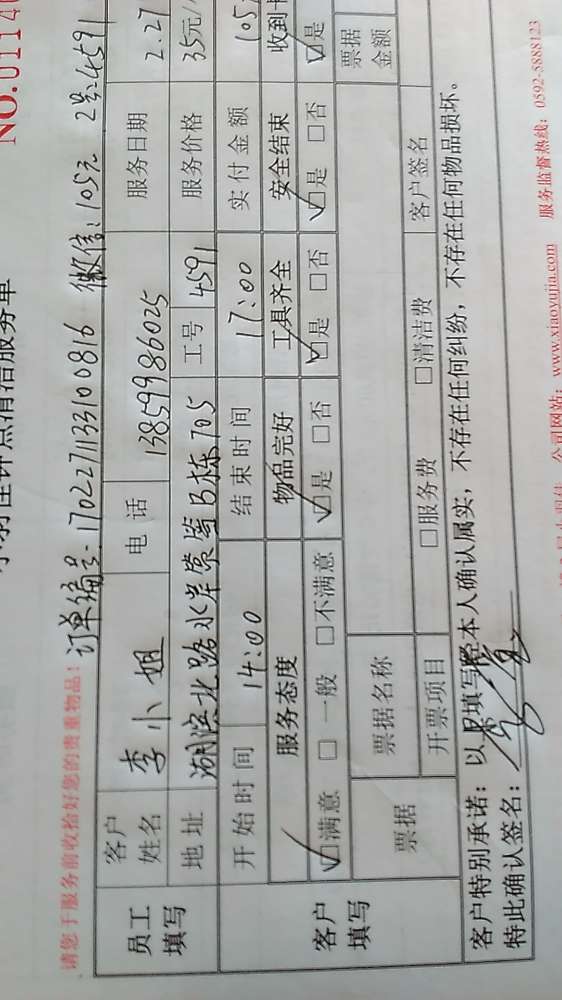 NO.0114
钟点清洁服务单
请您于服务前收拾好您的贵重物品！
订单编号-170227113310081​6 微信:105元 2号:4591
员工填写
客户姓名 李小姐 电话 13859986025 服务日期 2.27
地址 湖滨北路水岸荣筹B栋705 工号 4591 服务价格 35元/
客户填写
开始时间 14:00 结束时间 17:00 实付金额 105
服务态度 物品完好 工具齐全 安全结束 收到卡
☑满意 □一般 □不满意 ☑是 □否 ☑是 □否 ☑是 □否 ☑是
票据 票据名称 票据金额
开票项目 □服务费 □清洁费 客户签名
客户特别承诺：以上填写经本人确认属实，不存在任何纠纷，不存在任何物品损坏。
特此确认签名：
公司网站：www.xiaoyujia.com 服务监督热线：0592-5888123